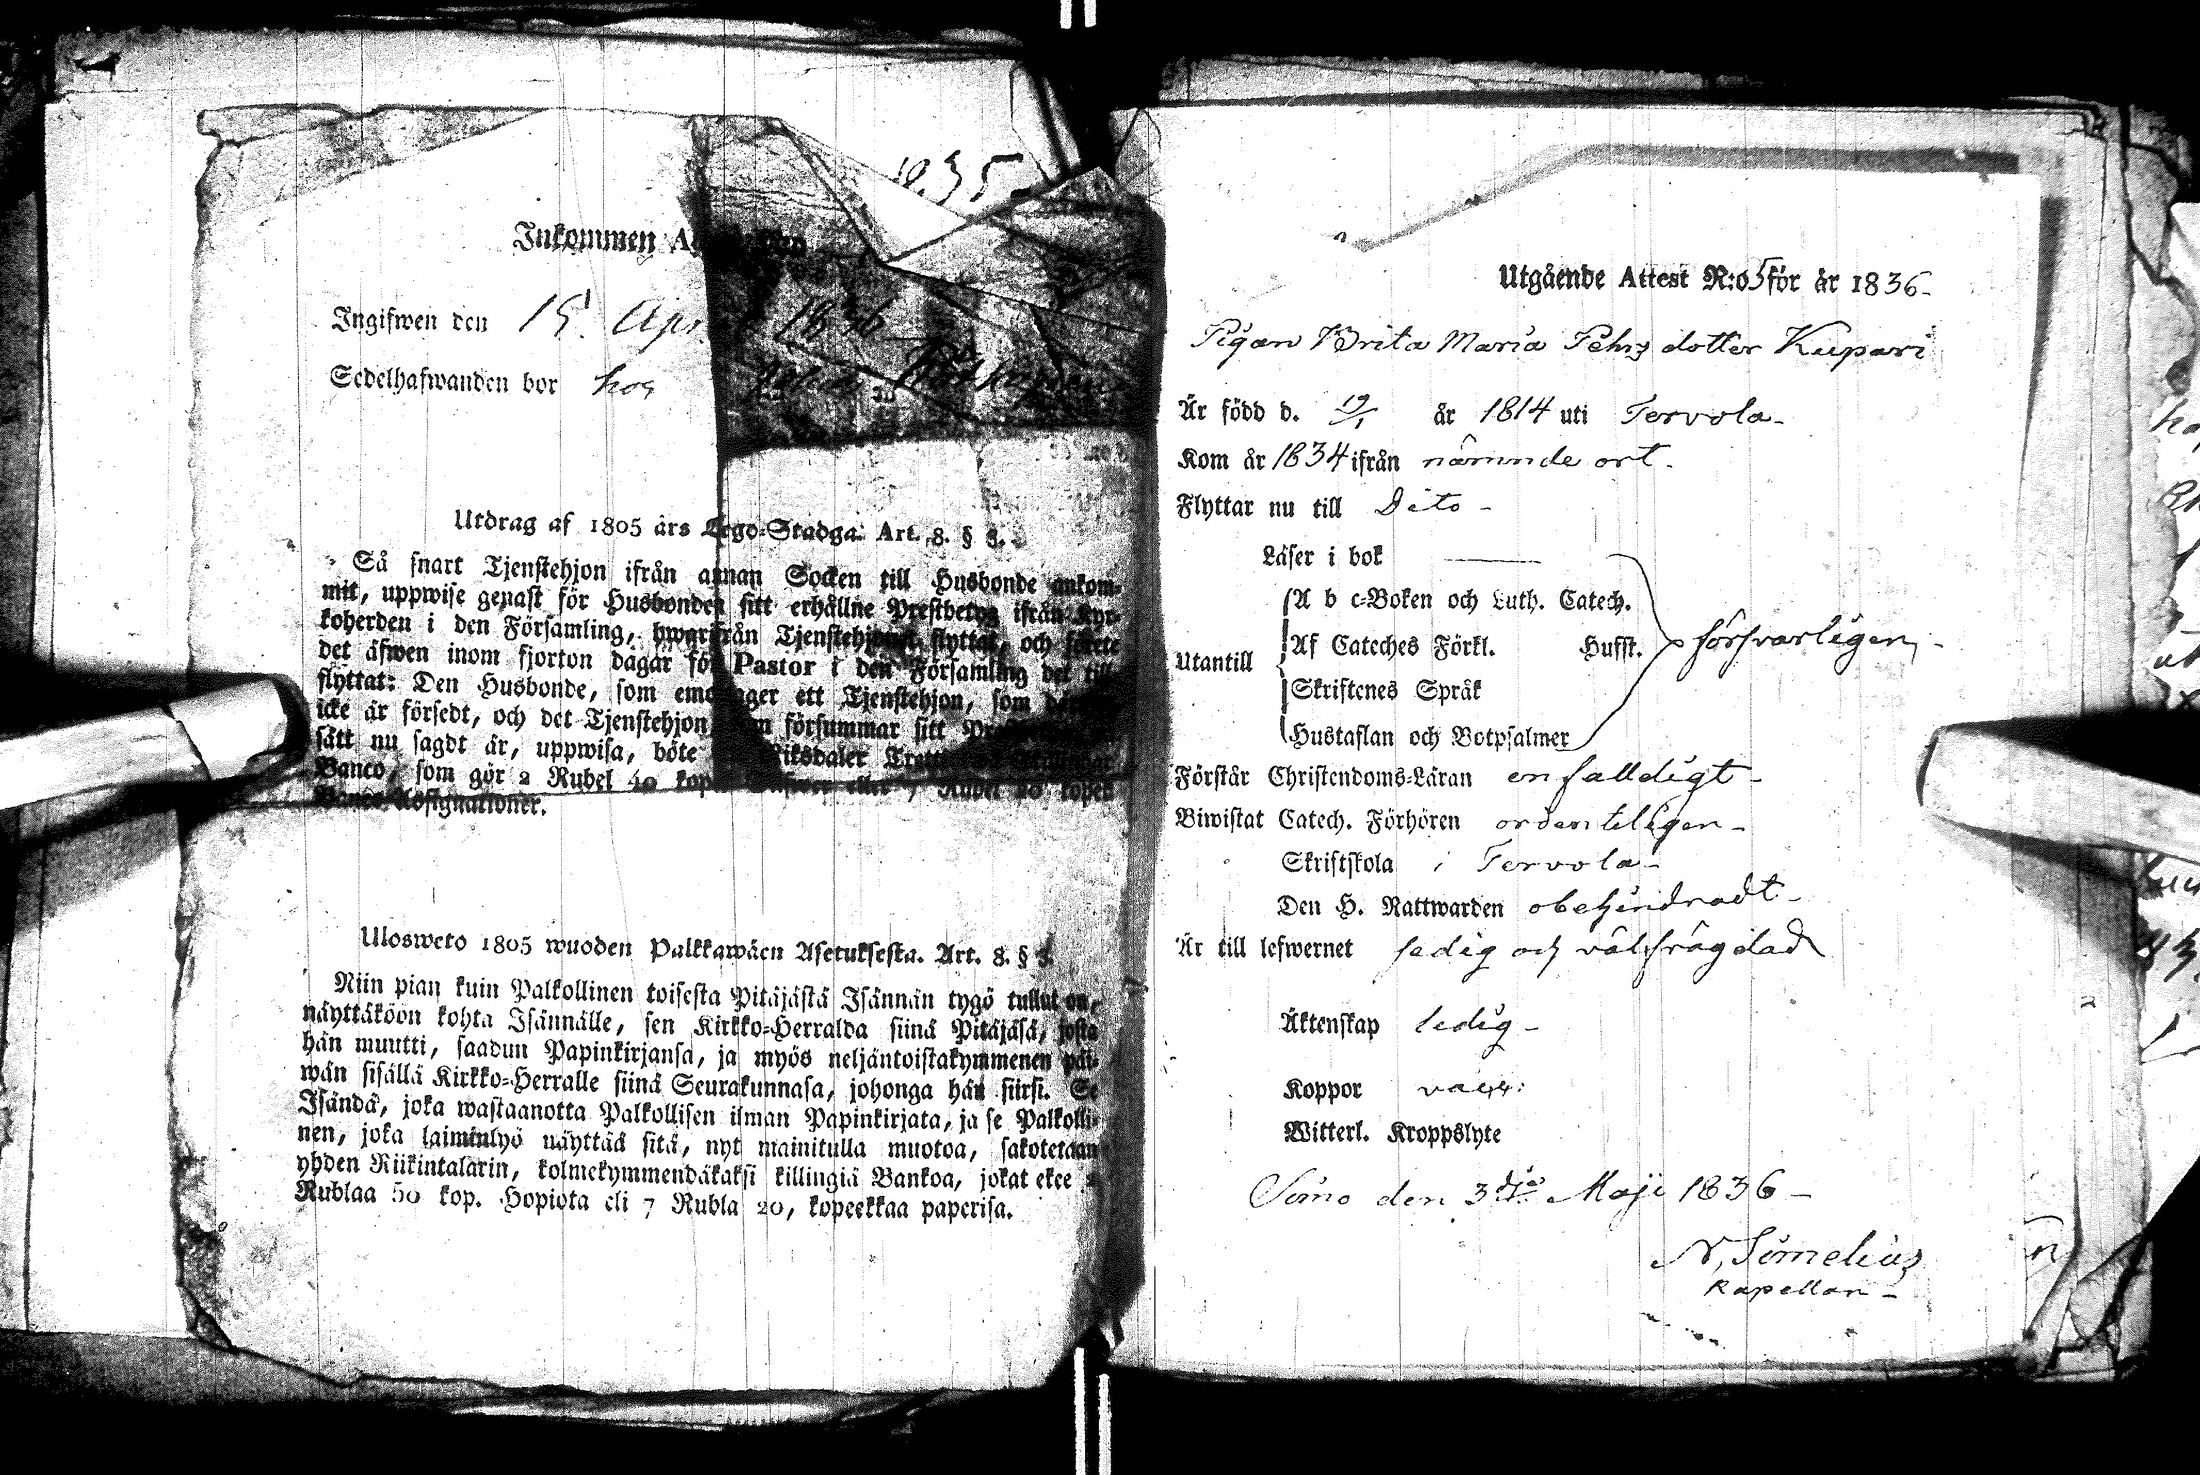 1835
Inkommen
Ingifwen den 15 Apr 1836
Sedelhafwanden bor hos
Utdrag af 1805 års Lego-Stadga. Art. 8. § 3.
Så snart Tjenstehjon ifrån annan Socken till Husbonde ankom-
mit, uppwise genast för Husbonden sitt erhållne Prestbetyg ifrån Kyr-
koherden i den Församling, hwarifrån Tjenstehjonet flyttat, och förete
det äfwen inom fjorton dagar för Pastor i den Församling det till
flyttat: Den Husbonde, som emottager ett Tjenstehjon, som
icke är försedt, och det Tjenstehjon som försummar sitt
sätt nu sagdt är, uppwisa, böte Riksdaler
Banco, som gör 2 Rubel 40 kop. Silfwer eller 7 Rubel 20 kopek
Banco-Assignationer.
Ulosweto 1805 wuoden Palkkawäen Asetuksesta. Art. 8. § 3.
Niin pian kuin Palkollinen toisesta Pitäjästä Isännän tygö tullut on,
näyttäköön kohta Isännälle, sen Kirkko-Herralda siinä Pitäjäsä, josta
hän muutti, saadun Papinkirjansa, ja myös neljäntoistakymmenen päi-
wän sisällä Kirkko-Herralle siinä Seurakunnasa, johonga hän siirsi. Se
Isändä, joka wastaanotta Palkollisen ilman Papinkirjata, ja se Palkolli-
nen, joka laiminlyö näyttää sitä, nyt mainitulla muotoa, sakotetaan
yhden Riikintalarin, kolmekymmendäkaksi killingiä Bankoa, jokat ekee 2
Rublaa 50 kop. Hopiota eli 7 Rubla 20, kopeekkaa paperisa.
Utgående Attest N:o 5 för år 1836-
Pigan Brita Maria Pehrs dotter Kupari
Är född d. 19/1 år 1814 uti Tervola-
Kom år 1834 ifrån nämnde ort.
Flyttar nu till Dito -
Läser i bok
A b c-Boken och Luth. Catech.
Af Cateches Förkl. Hufst. försvarligen -
Utantill
Skriftenes Språk
Hustaflan och Botpsalmer
Förstår Christendoms-Läran enfalldigt -
Biwistat Catech. Förhören ordenteligen -
Skriftskola i Tervola -
Den H. Nattwarden obehindradt -
Är till lefwernet sedig och välfrägdad
Äktenskap ledig -
Koppor vacc:
Witterl. Kroppslyte
Simo den 3dje Maji 1836 -
N. Simelius
Kapellan -